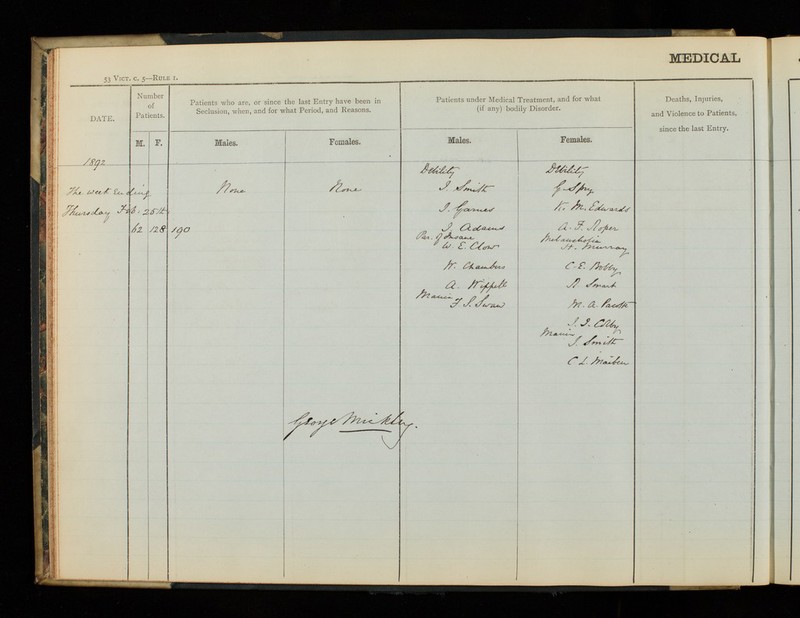 MEDICAL
53 VICT. c. 5—RULE 1.
DATE.
Number
of
Patients.
M. F.
Patients who are, or since the last Entry have been in
Seclusion, when, and for what Period, and Reasons.
Males. Females.
Patients under Medical Treatment, and for what
(if any) bodily Disorder.
Males. Females.
Deaths, Injuries,
and Violence to Patients,
since the last Entry.
1892
The week Ending
Thursday Feb. 25th
62 128 190
None
None
Debility
J. Smith
J. Garnes
J. Adams
Par. of Insane
W. E. Clow
W. Chambers
A. Wippell
Mania
F. J. Swan
Debility
G. Spry
K. M. Edwards
A. F. Roper
Melancholia
H. Murray
C. E. Bobby
R. Smart
M. A.
J. J. Colby
Mania
J. Smith
C L Maiben
George Mickley.